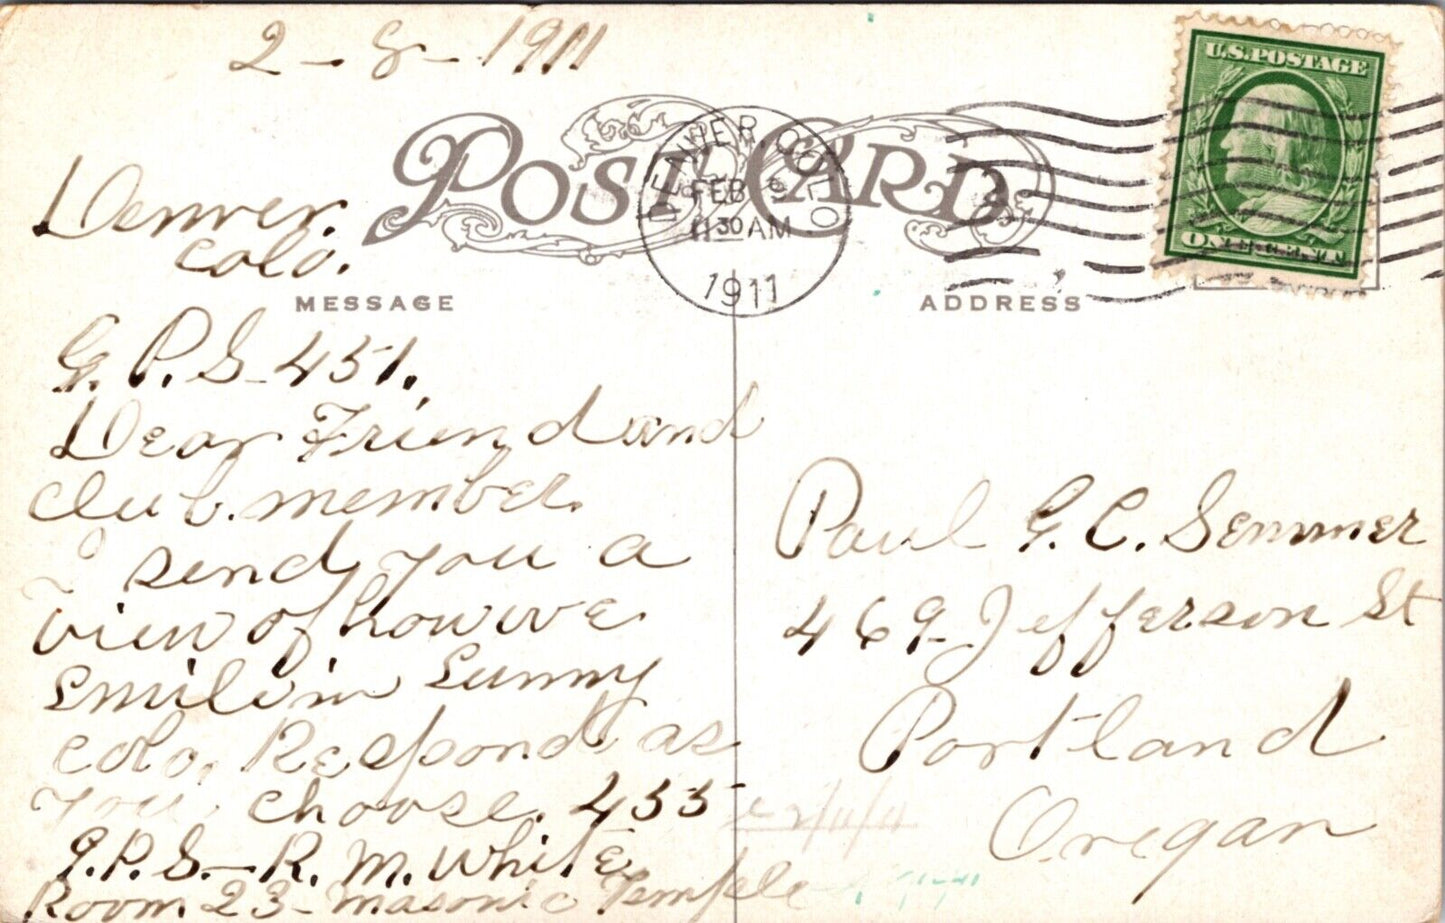 2-8-1911
POST CARD
DENVER. COLO
FEB 9
11 30 AM
1911
U.S. POSTAGE
MESSAGE
ADDRESS
Denver.
Colo.
G. P. S. 451.
Dear Friend and
club. member.
I send you a
view of how we
Smile in Sunny
Colo. Respond as
you choose. 455
G.P.S.- R. M. White
Room 23- Masonic Temple
Paul G. C. Semmer
469- Jefferson St
Portland
Oregan
2/11/11